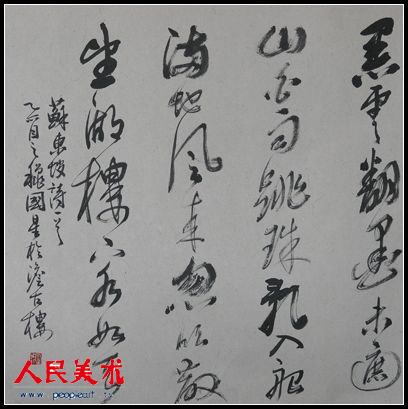 黑雲翻墨未遮
山白雨跳珠亂入船
地風來忽吹散
望湖樓下水如天
蘇東坡詩一首
乙酉之穐國星於古樓
人民美术
www.peopleart.tv